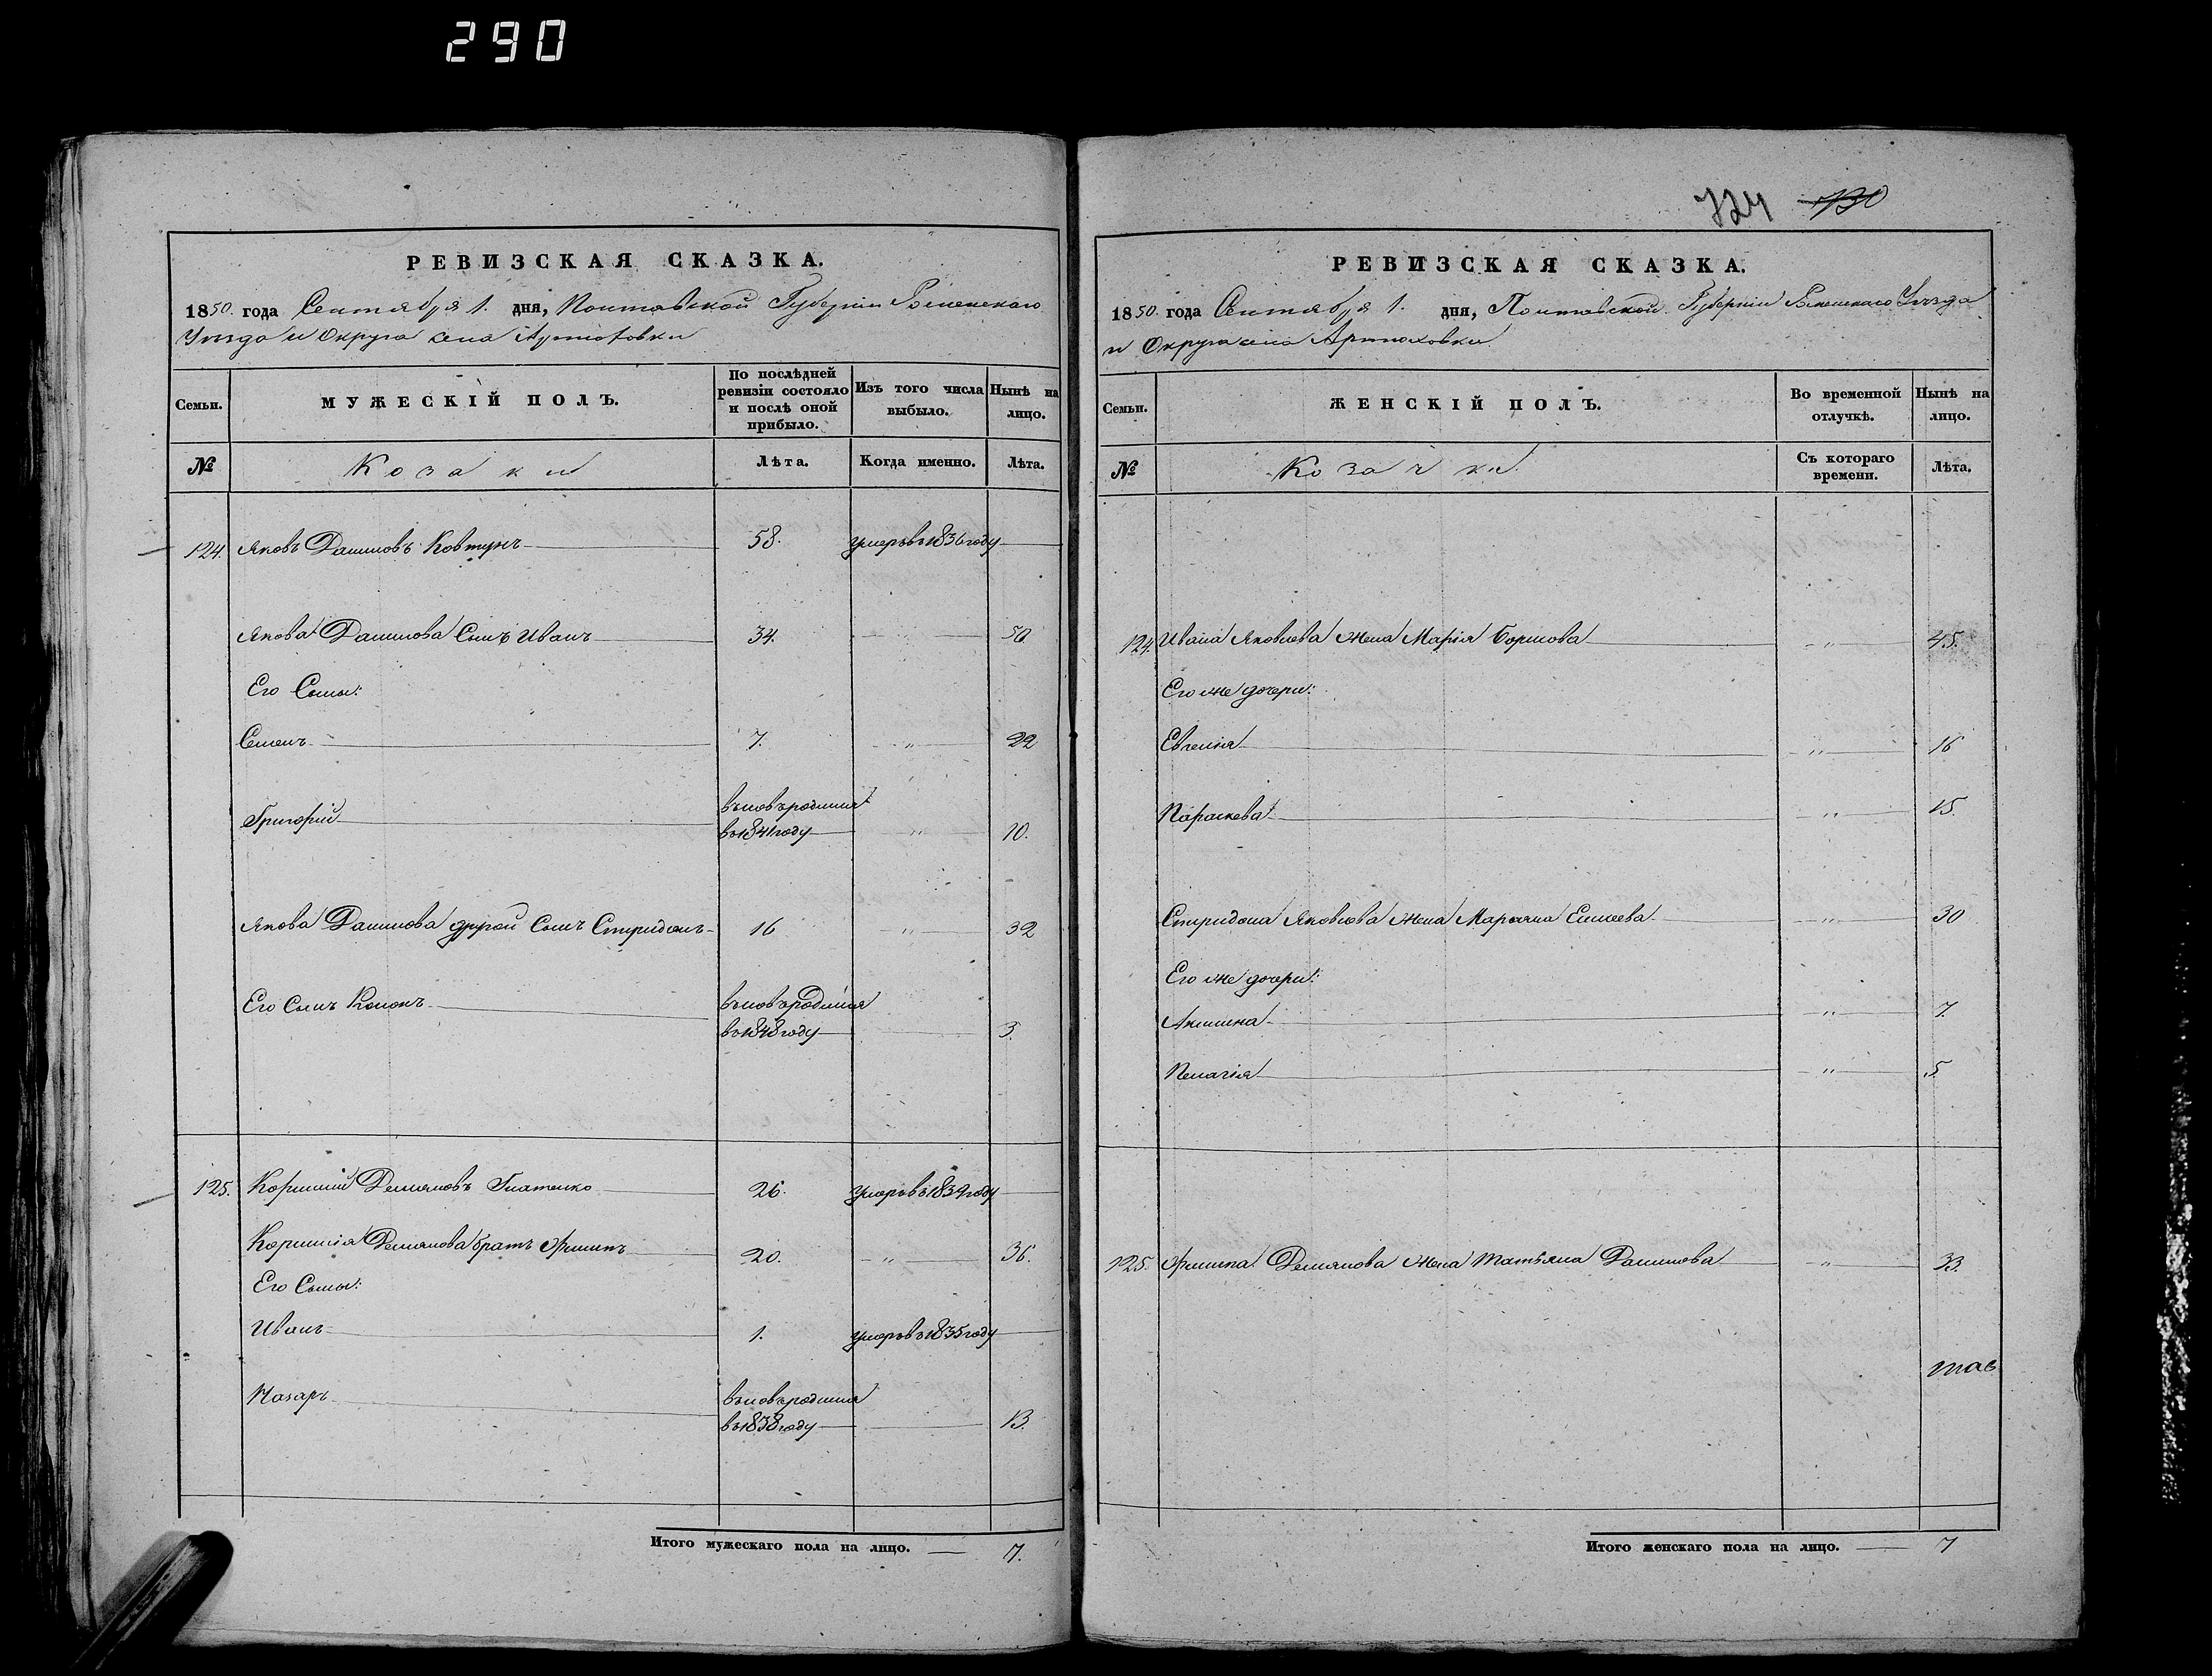 290
РЕВИЗСКАЯ СКАЗКА.
1850. года Сентября 1. дня, Полтавской Губерніи Роменскаго
Уѣзда и Округа села Артюховки
Семьи.
МУЖЕСКІЙ ПОЛЪ.
По послѣдней ревизіи состояло и послѣ оной прибыло.
Изъ того числа выбыло.
Нынѣ на лицо.
№
Козаки
Лѣта.
Когда именно.
Лѣта.
124. Яковъ Даниловъ Ковтунъ 58. умеръ въ 1836 году
Якова Данилова Сынъ Иванъ 34. 50
Его Сыны:
Семенъ 7. " 22
Григорій вновь родился
въ 1841 году " 10.
Якова Данилова другой Сынъ Спиридонъ 16 " 32
Его Сынъ Кононъ вновь родился
въ 1848 году 3.
125. Корнилій Демяновъ Гнатенко 26. умеръ въ 1839 году
Корнилія Демянова братъ Филипъ 20. " 36.
Его Сыны:
Иванъ 1. умеръ въ 1835 году
Назаръ вновь родился
въ 1838 году 13.
Итого мужескаго пола на лицо. 7.
724 130
РЕВИЗСКАЯ СКАЗКА.
1850. года Сентября 1. дня, Полтавской Губерніи Роменскаго Уѣзда
и Округа села Артюховки
Семьи.
ЖЕНСКІЙ ПОЛЪ.
Во временной отлучкѣ.
Нынѣ на лицо.
№
Козачки
Съ котораго времени.
Лѣта.
124. Ивана Яковлева жена Марія Борисова " 45.
Его же дочери:
Евгенія " 16
Параскева " 15.
Спиридона Яковлева жена Маріяна Елисеева " 30
Его же дочери:
Акилина " 7.
Пелагія " 5.
125. Филипа Демянова жена Татьяна Данилова " 33.
Итого женскаго пола на лицо. 7